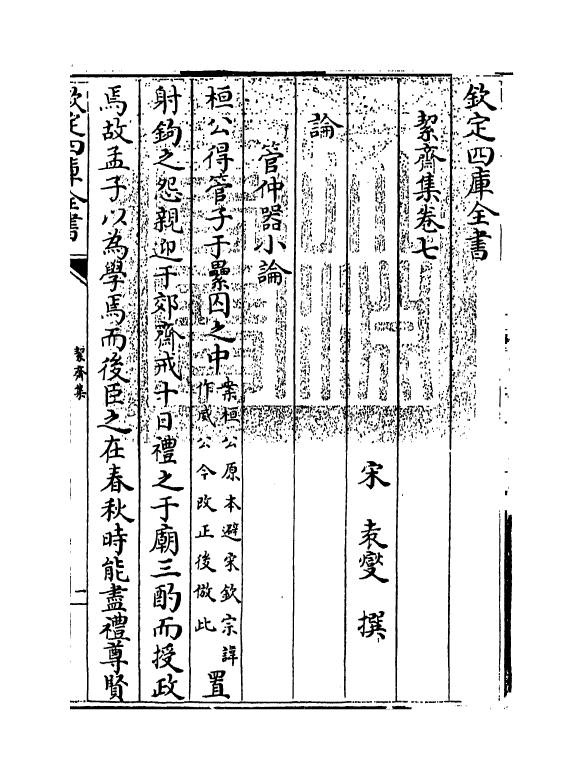 欽定四庫全書
絜齋集卷七
宋 袁燮 撰
論
管仲器小論
桓公得管子于纍囚之中案桓公原本避宋欽宗諱作威公今改正後倣此置
射鉤之怨親迎于郊齋戒十日禮之于廟三酌而授政
焉故孟子以為學焉而後臣之在春秋時能盡禮尊賢
欽定四庫全書
絜齋集